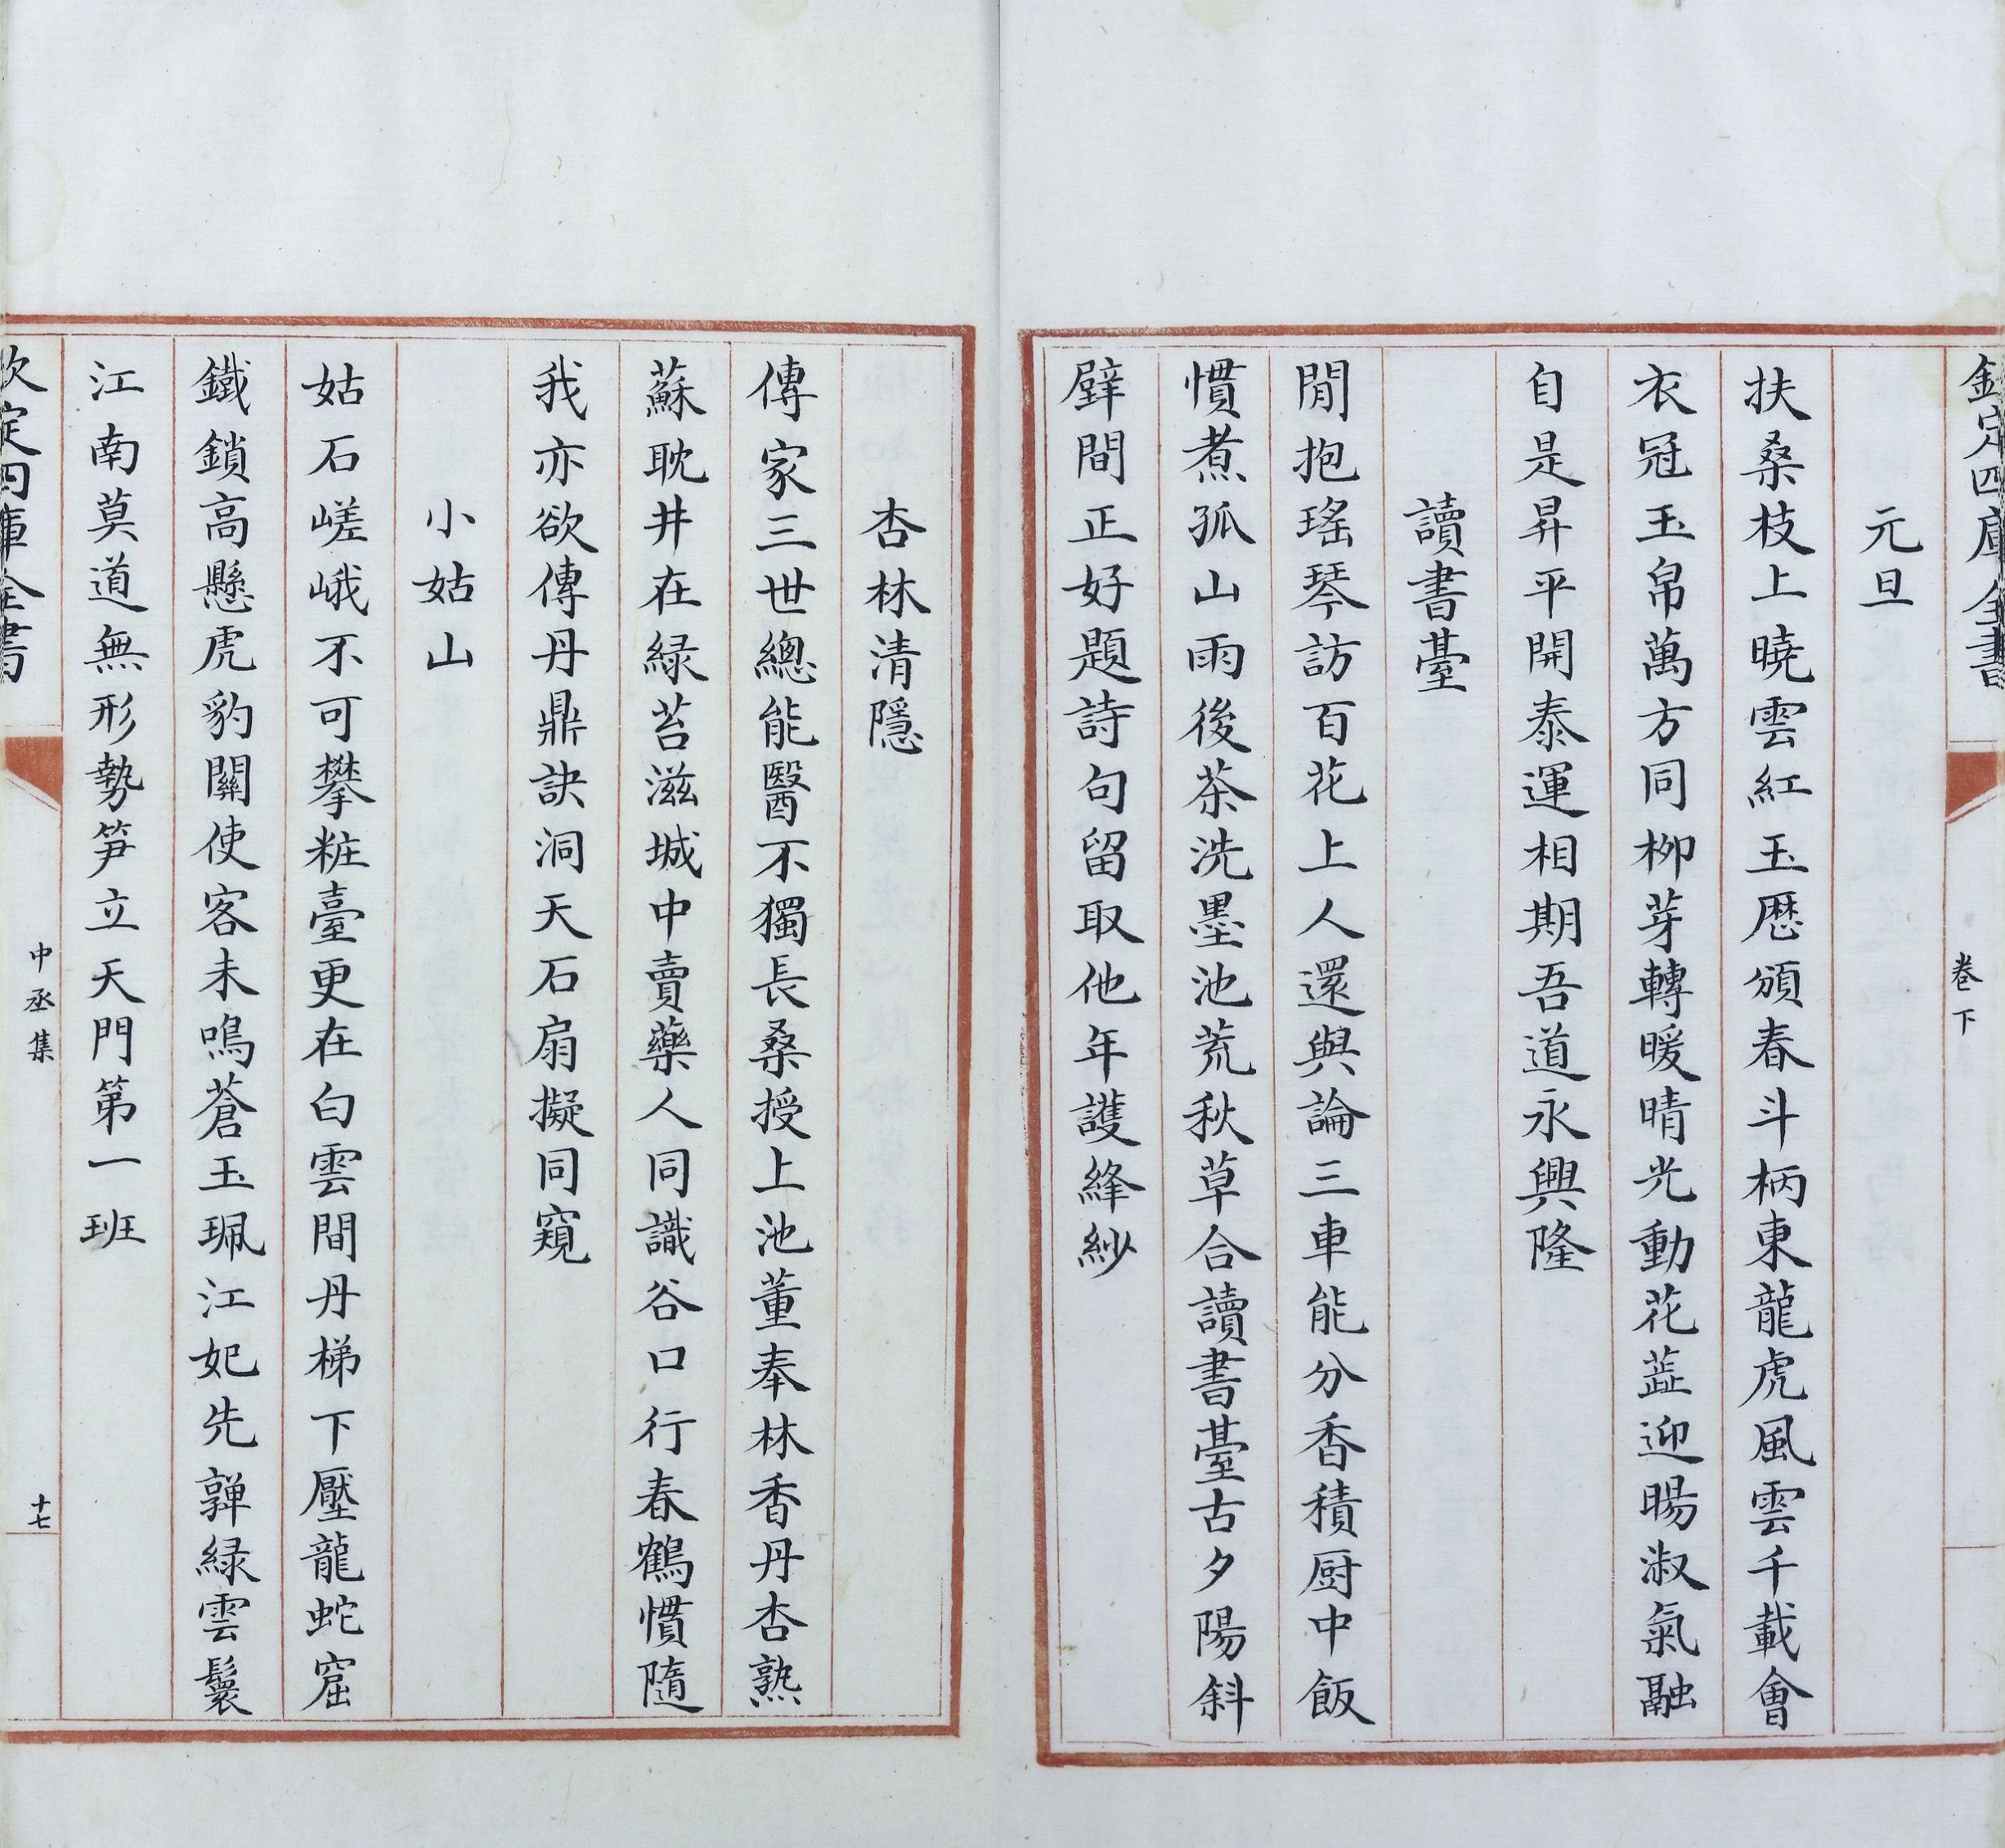 欽定四庫全書
卷下
元旦
扶桑枝上曉雲紅玉厯頒春斗柄東龍虎風雲千載會
衣冠玉帛萬方同柳芽轉暖晴光動花蘂迎暘淑氣融
自是昇平開泰運相期吾道永興隆
讀書臺
閒抱瑤琴訪百花上人還與論三車能分香積厨中飯
慣煮孤山雨後茶洗墨池荒秋草合讀書臺古夕陽斜
壁間正好題詩句留取他年護絳紗
杏林清隱
傳家三世總能醫不獨長桑授上池董奉林香丹杏熟
蘇耽井在緑苔滋城中賣藥人同識谷口行春鶴慣隨
我亦欲傳丹鼎訣洞天石扇擬同窺
小姑山
姑石嵯峨不可攀粧臺更在白雲間丹梯下壓龍蛇窟
鐵鎖高懸虎豹關使客未鳴蒼玉珮江妃先嚲緑雲鬟
江南莫道無形勢笋立天門第一班
欽定四庫全書
中丞集
十七